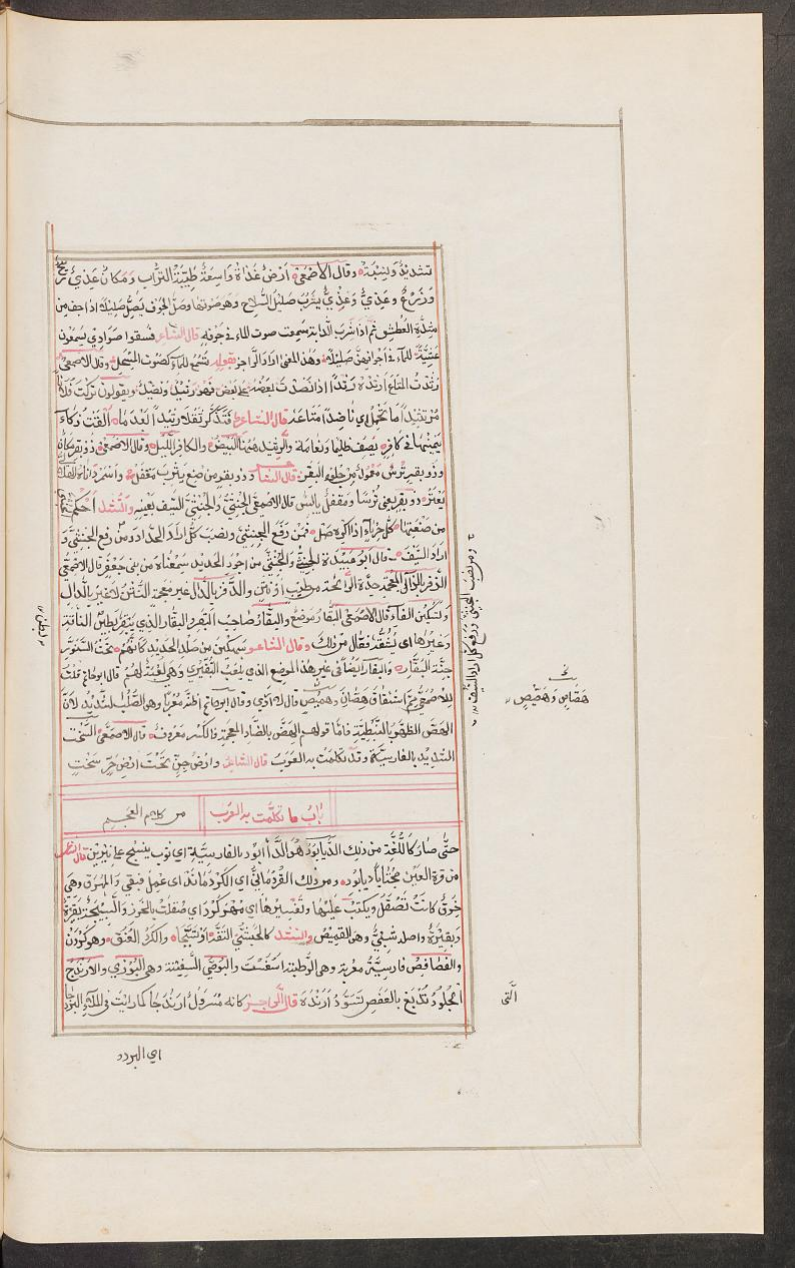 تشديد ونسبة وقال الأصمعي أرض غذاة واسعة طيبة التراب ومكان عذي ريح
وزرع وعذي وعذي يثرب صليل السلاح وهو صوتها وصل الجوف يصل صليلا اذا جف من
شدة العطش ثم اذا شرب الدابة سمعت صوت الماء في جوفه قال الشاعر فسقوا صوادي يسمعون
عشية للماء في أجوافهن صليلا وهذا المعنى اراد الراجز بقوله تسمع للماء كصوت المسحل وقال الاصمعي
رثدت المتاع أرثده رثدا اذا نضدت بعضه على بعض فهو رثيد ونضيد ويقولون تركت فلانا
مرتثدا ما تحمل اي ناضدا متاعه قال الشاعر فتذكرت ثقلا رثيدا بعد ما ألقت ذكاء
يمينها في كافر يصف ظليما ونعامة والرثيد ههنا البيض والكافر الليل وقال الاصمعي ذو بقر مكان
وذو بقر ترس معمول من جلود البقر قال الشاعر وذو بقر من صنع يثرب مقفل واسمر
يعتر ذو بقر يعني ترسا ومقفل يابس قال الاصمعي الجنثي والجنثي السيف بعينه وانشد أحكم الجنثي
من صنعتها كل حرباء اذا اكره صل فمن رفع الجنثي ونصب كل اراد الحداد ومن رفع الجنثي و
اراد السيف قال ابو عبيدة الجنثي والجنثي من اجود الحديد سمعناه من بني جعفر قال الاصمعي
الذفر بالذال المعجمة حدة الرائحة من طيب او نتن والدفر بالدال غير معجمة النتن لا غير بالدال
وتسكين الفاء قال الاصمعي البقار موضع والبقار صاحب البقر والبقار الذي يبقر بطن الناقة
وغيرها اي يشقه فقال من ذلك وقال الشاعر سهكين من صدا الحديد كأنهم تحت السنور
جنة البقار والبقار ايضا في غير هذا الموضع الذي يلعب البقيرى وهي لعبة لهم قال ابو حاتم قلت
للاصمعي مم اشتقاق هصان وهصيص قال لا ادري وقال ابو حاتم اظنه معربا وهو الصلب الشديد لان
الهص الظهر بالنبطية فاما قولهم الهض بالضاد المعجمة فالكسر معروف قال الاصمعي السخت
الشديد بالفارسية وقد تكلمت به العرب قال الشاعر وارض جن تحت ارض حر سخت
باب ما تكلمت به العرب من كلام العجم
حتى صار كاللغة من ذلك الديابود هو الدوابود بالفارسية اي ثوب ينسج على نيرين قال الشاعر
من قرة العين مجتابا ديابود ومن ذلك القردماني اي الكردماند اي عمل فبقي والمهرق وهي
خرق كانت تصقل ويكتب عليها وتفسيرها اي مهركرد اي صقلت بالخرز والسبيجة بقيرة
وبقيرة واصله شبي وهو القميص وانشد كالحبشي التف او تسبجا والكرد العنق وهو كردن
والفصافص فارسية معربة وهي الرطبة اسفست والبوصي السفينة وهي البوزي والارندج
الجلود تدبغ بالعفص تسود ارنده قال الراجز كانه مسرول ارندجا كما رايت في الملاء البردجا
اي البرده
ومن نصب الجنثي ورفع كل اراد السيف
ك
هصاص وهصيص
التي